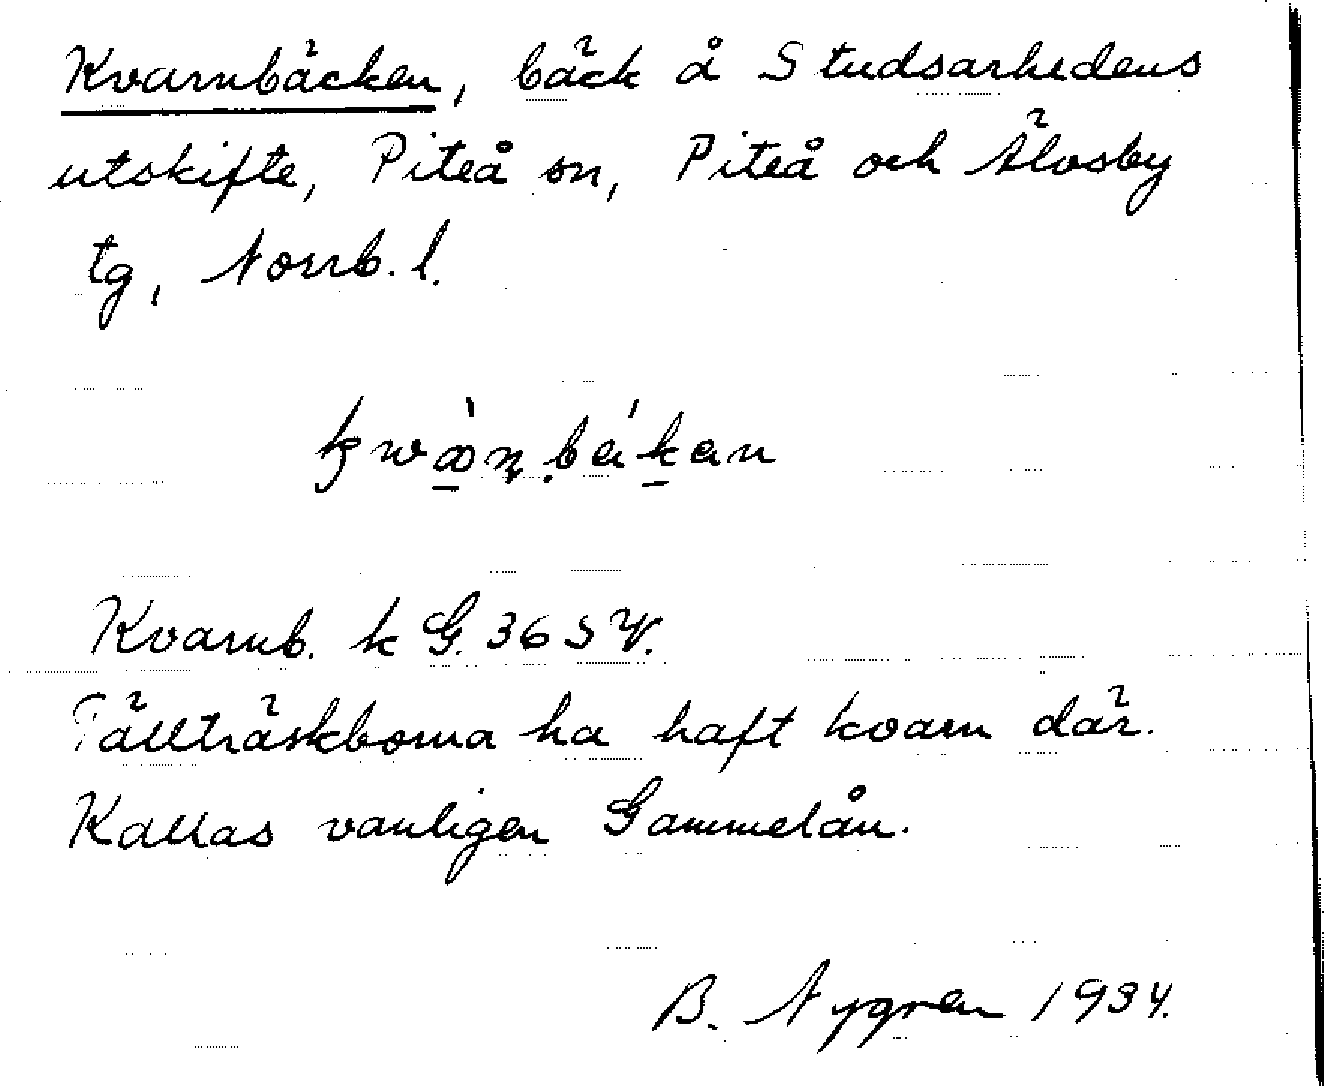 Kvarnbäcken, bäck å Studsarhedens
utskifte, Piteå sn, Piteå och Älvsby
tg, Norrb. l.
Kvarnb. k G. 365 V.
Tällträskborna ha haft kvarn där.
Kallas vanligen Gammelån.
B. Nygren 1934.